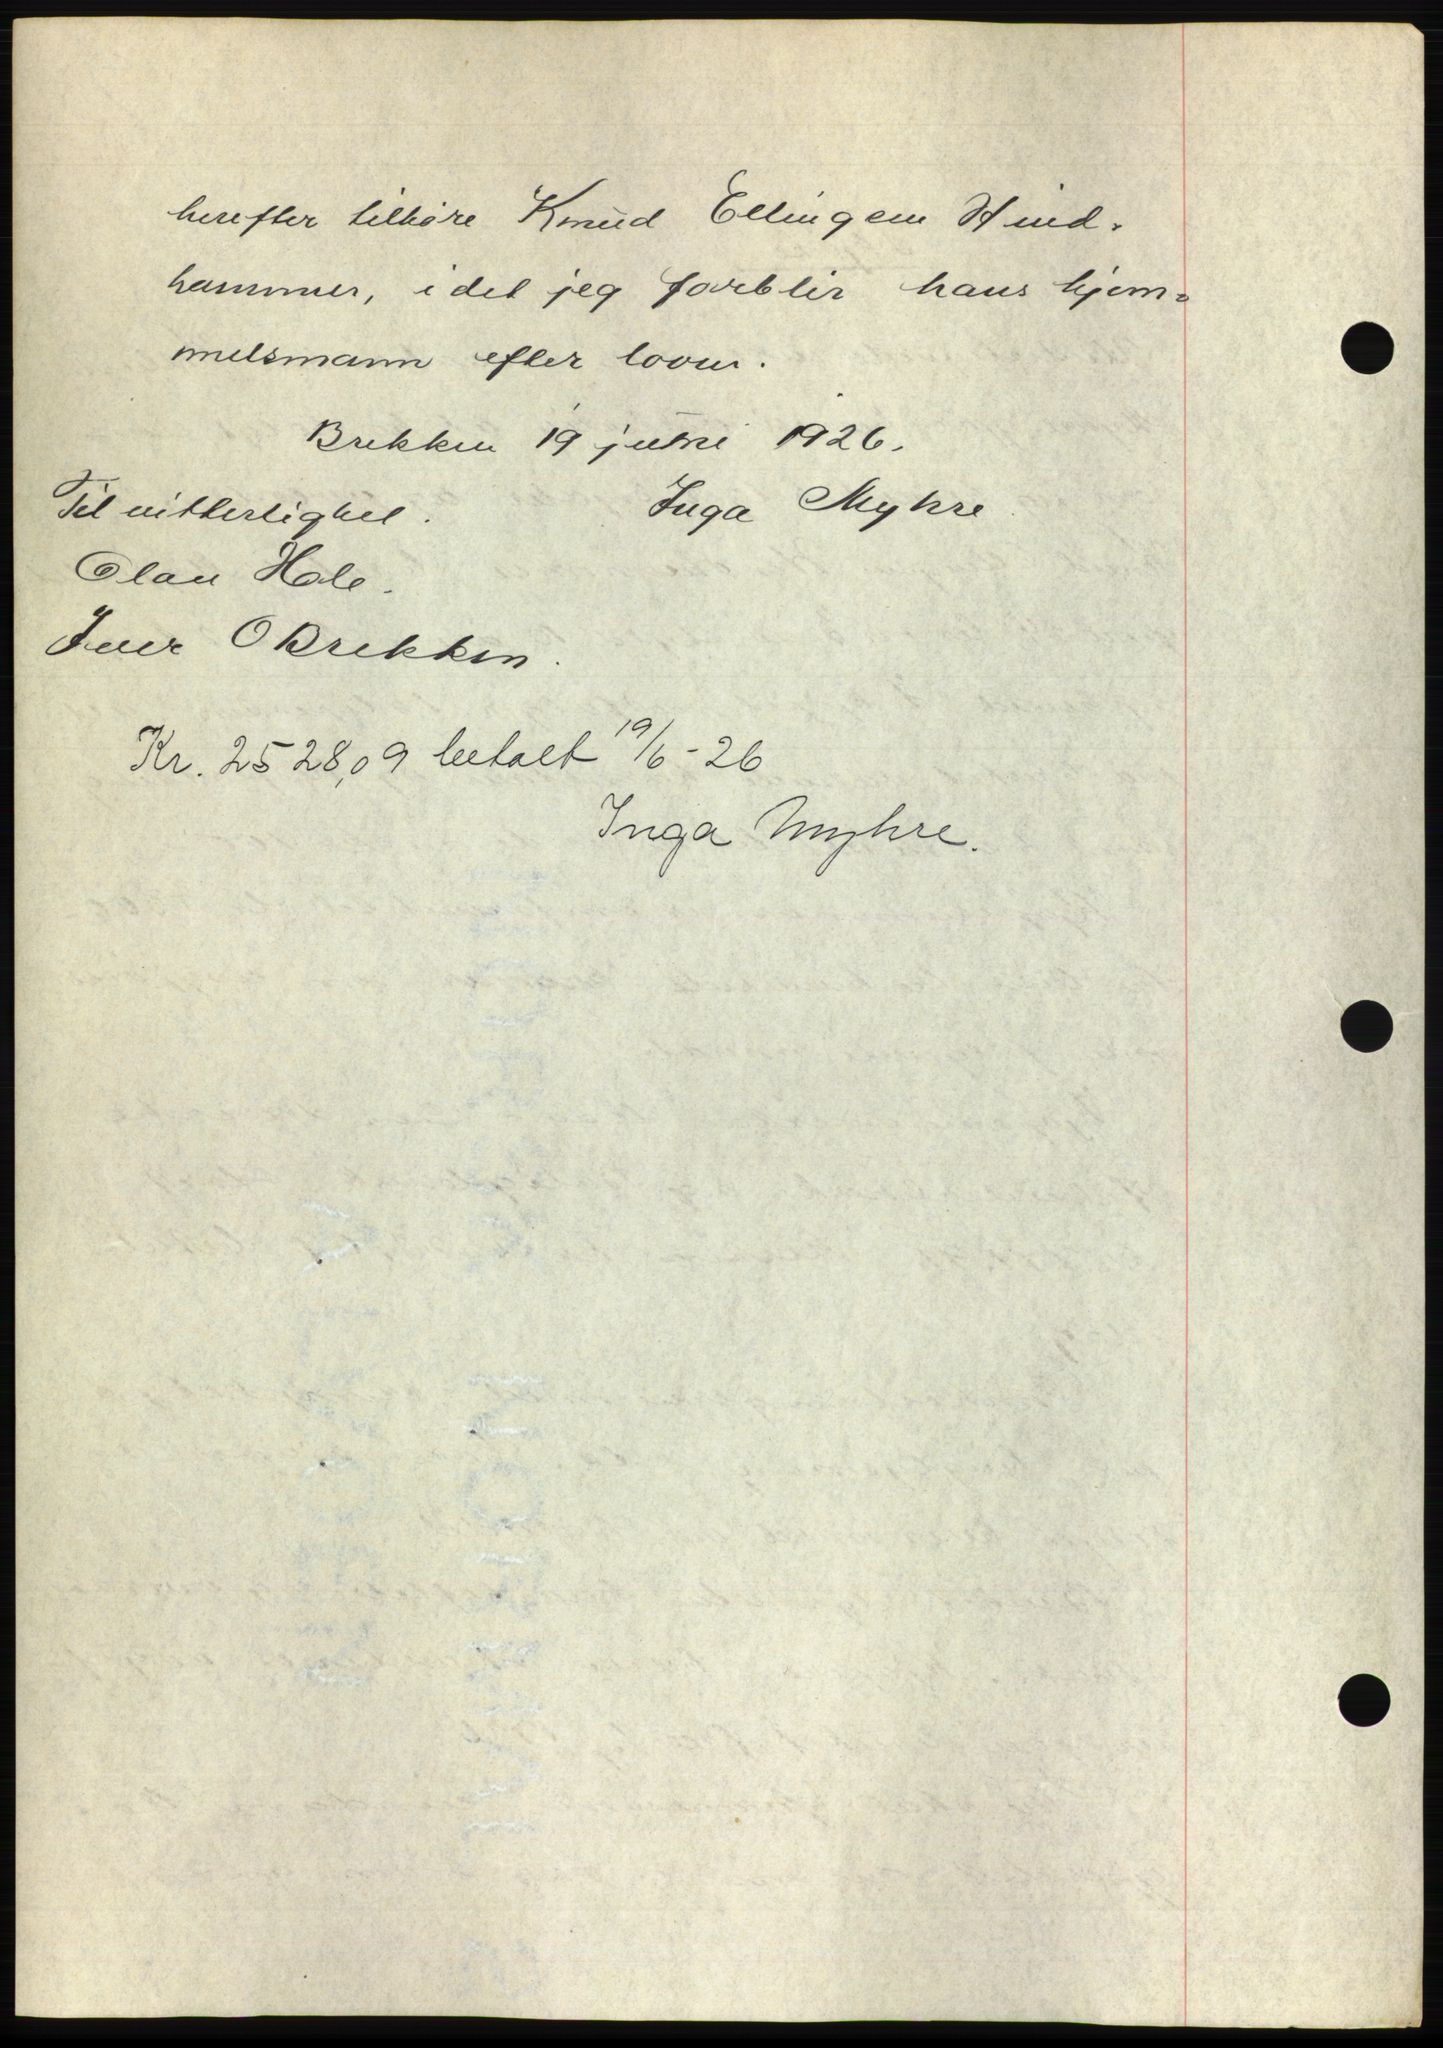 herefter tilhøre Knud Ellingsen Hind-
hammer, idet jeg forblir hans hjem-
melsmann efter loven.
Brekken 19 juni 1926.
Til vitterlighet. Inga Myhre
Olau Hole.
Iver O Brekken.
Kr. 2528,09 betalt 19/6-26
Inga Myhre.